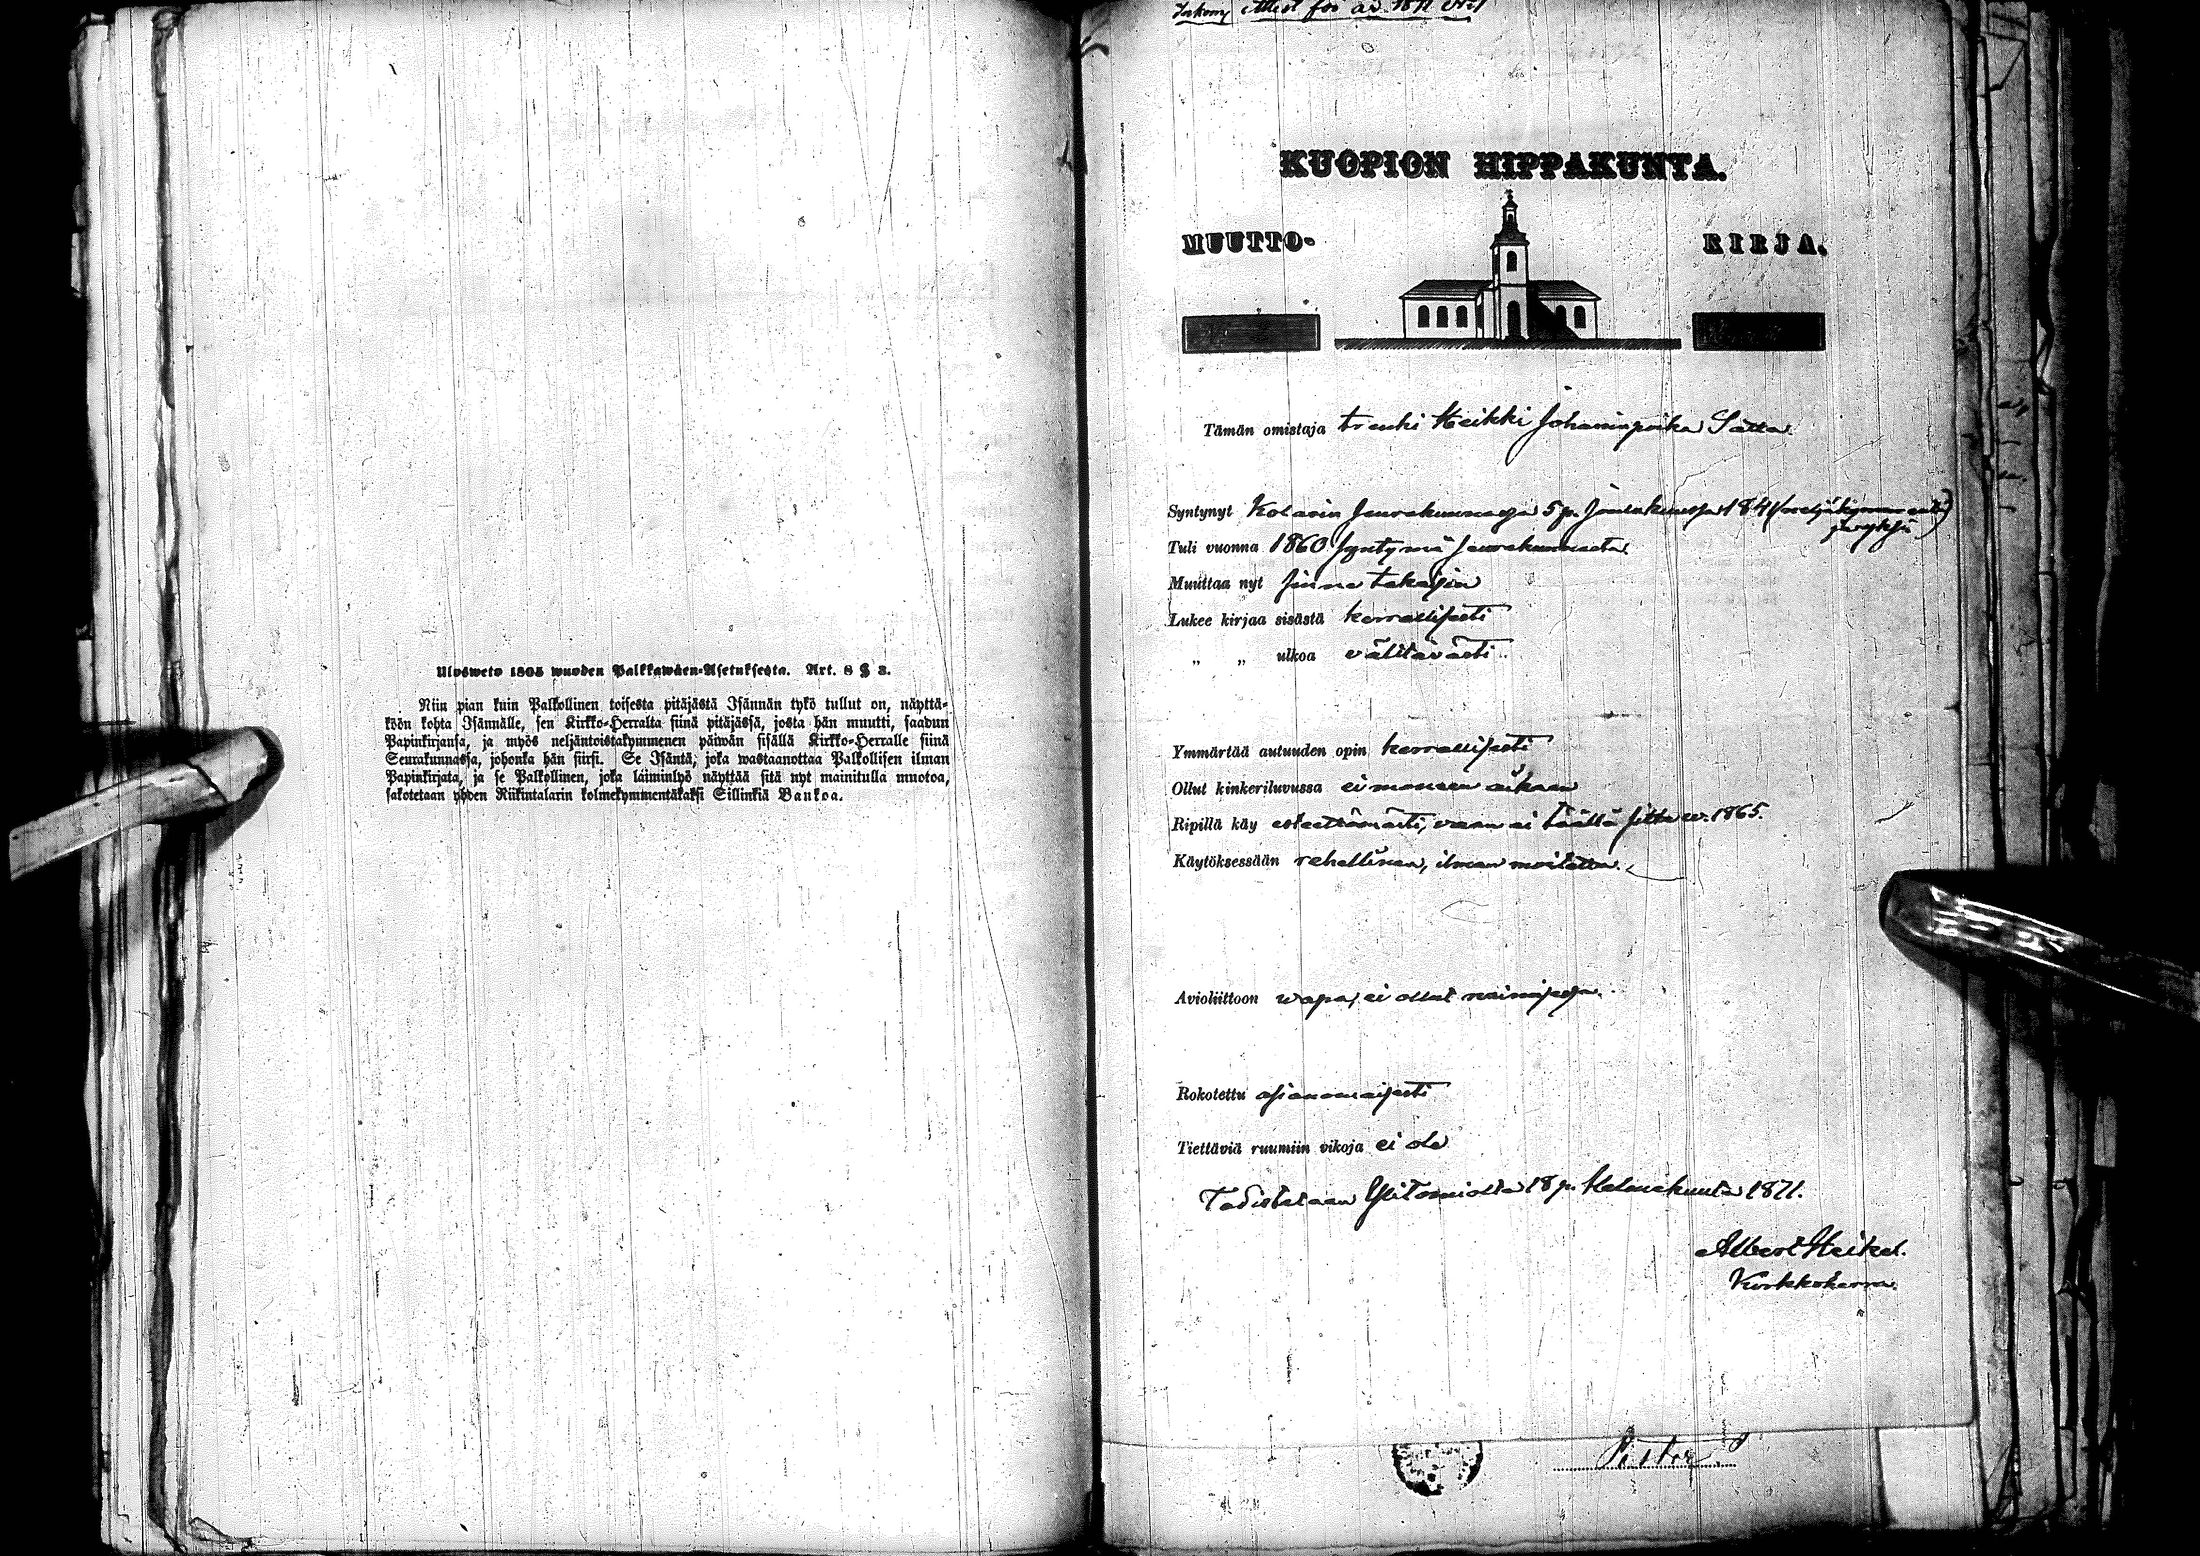 Ulosweto 1805 wuoden Palkkawäen-Asetuksesta. Art. 8 § 3.
Niin pian kuin Palkollinen toisesta pitäjästä Isännän tykö tullut on, näyttä-
köön kohta Isännälle, sen Kirkko-Herralta siinä pitäjässä, josta hän muutti, saadun
Papinkirjansa, ja myös neljäntoistakymmenen päiwän sisällä Kirkko-Herralle siinä
Seurakunnassa, johonka hän siirsi. Se Isäntä, joka wastaanottaa Palkollisen ilman
Papinkirjata, ja se Palkollinen, joka laiminlyö näyttää sitä nyt mainitulla muotoa,
sakotetaan yhden Riikintalarin kolmekymmentäkaksi Sillinkiä Bankoa.
Inkom, Attest för år 1871 No 1
KUOPION HIPPAKUNTA.
MUUTTO- KIRJA.
Tämän omistaja trenki Heikki Johaninpoika
Syntynyt Kolarin seurakunnassa 5 p. Joulukuussa 184
Tuli vuonna 1860 syntymä seurakunnasta
Muuttaa nyt sinne takaisin
Lukee kirjaa sisästä kerrallisesti
„ „ ulkoa välttävästi
Ymmärtää autuuden opin kerrallisesti
Ollut kinkeriluvussa ei moneen aikaan
Ripillä käy esteettömästi, vaan ei täällä sitte w. 1865.
Käytöksessään rehellinen, ilman moitetta.
Avioliittoon wapa, ei ollut naimisessa.
Rokotettu asianomaisesti
Tiettäviä ruumiin vikoja ei ole
Todistetaan Ylitorniolta 18 p. Helmikuuta 1871.
Albert Heikel.
Kirkkoherra.